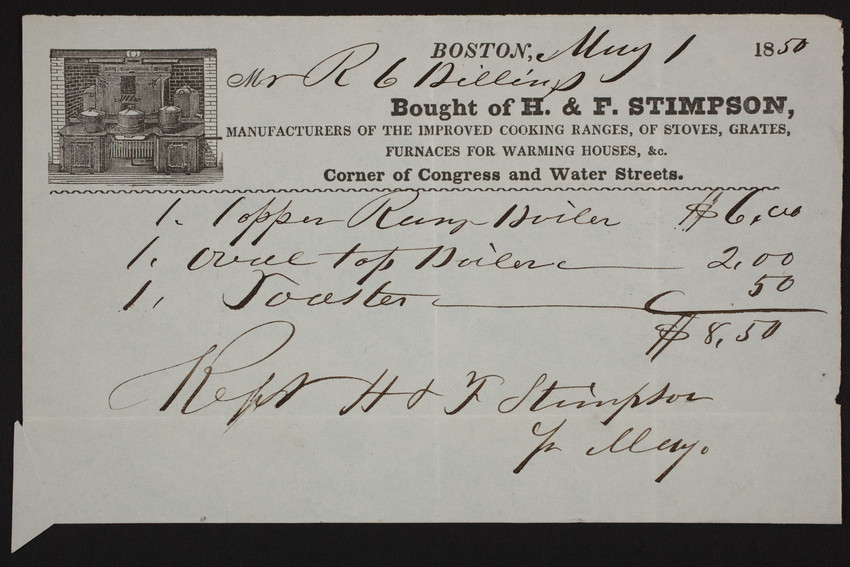 BOSTON, May 1 1850
Mr R C Billings
Bought of H. & F. STIMPSON,
MANUFACTURERS OF THE IMPROVED COOKING RANGES, OF STOVES, GRATES,
FURNACES FOR WARMING HOUSES, &c.
Corner of Congress and Water Streets.
1. Copper Range Boiler $6,00
1, Oval top Boiler 2,00
1, Toaster 50
$8,50
H & F Stimpson